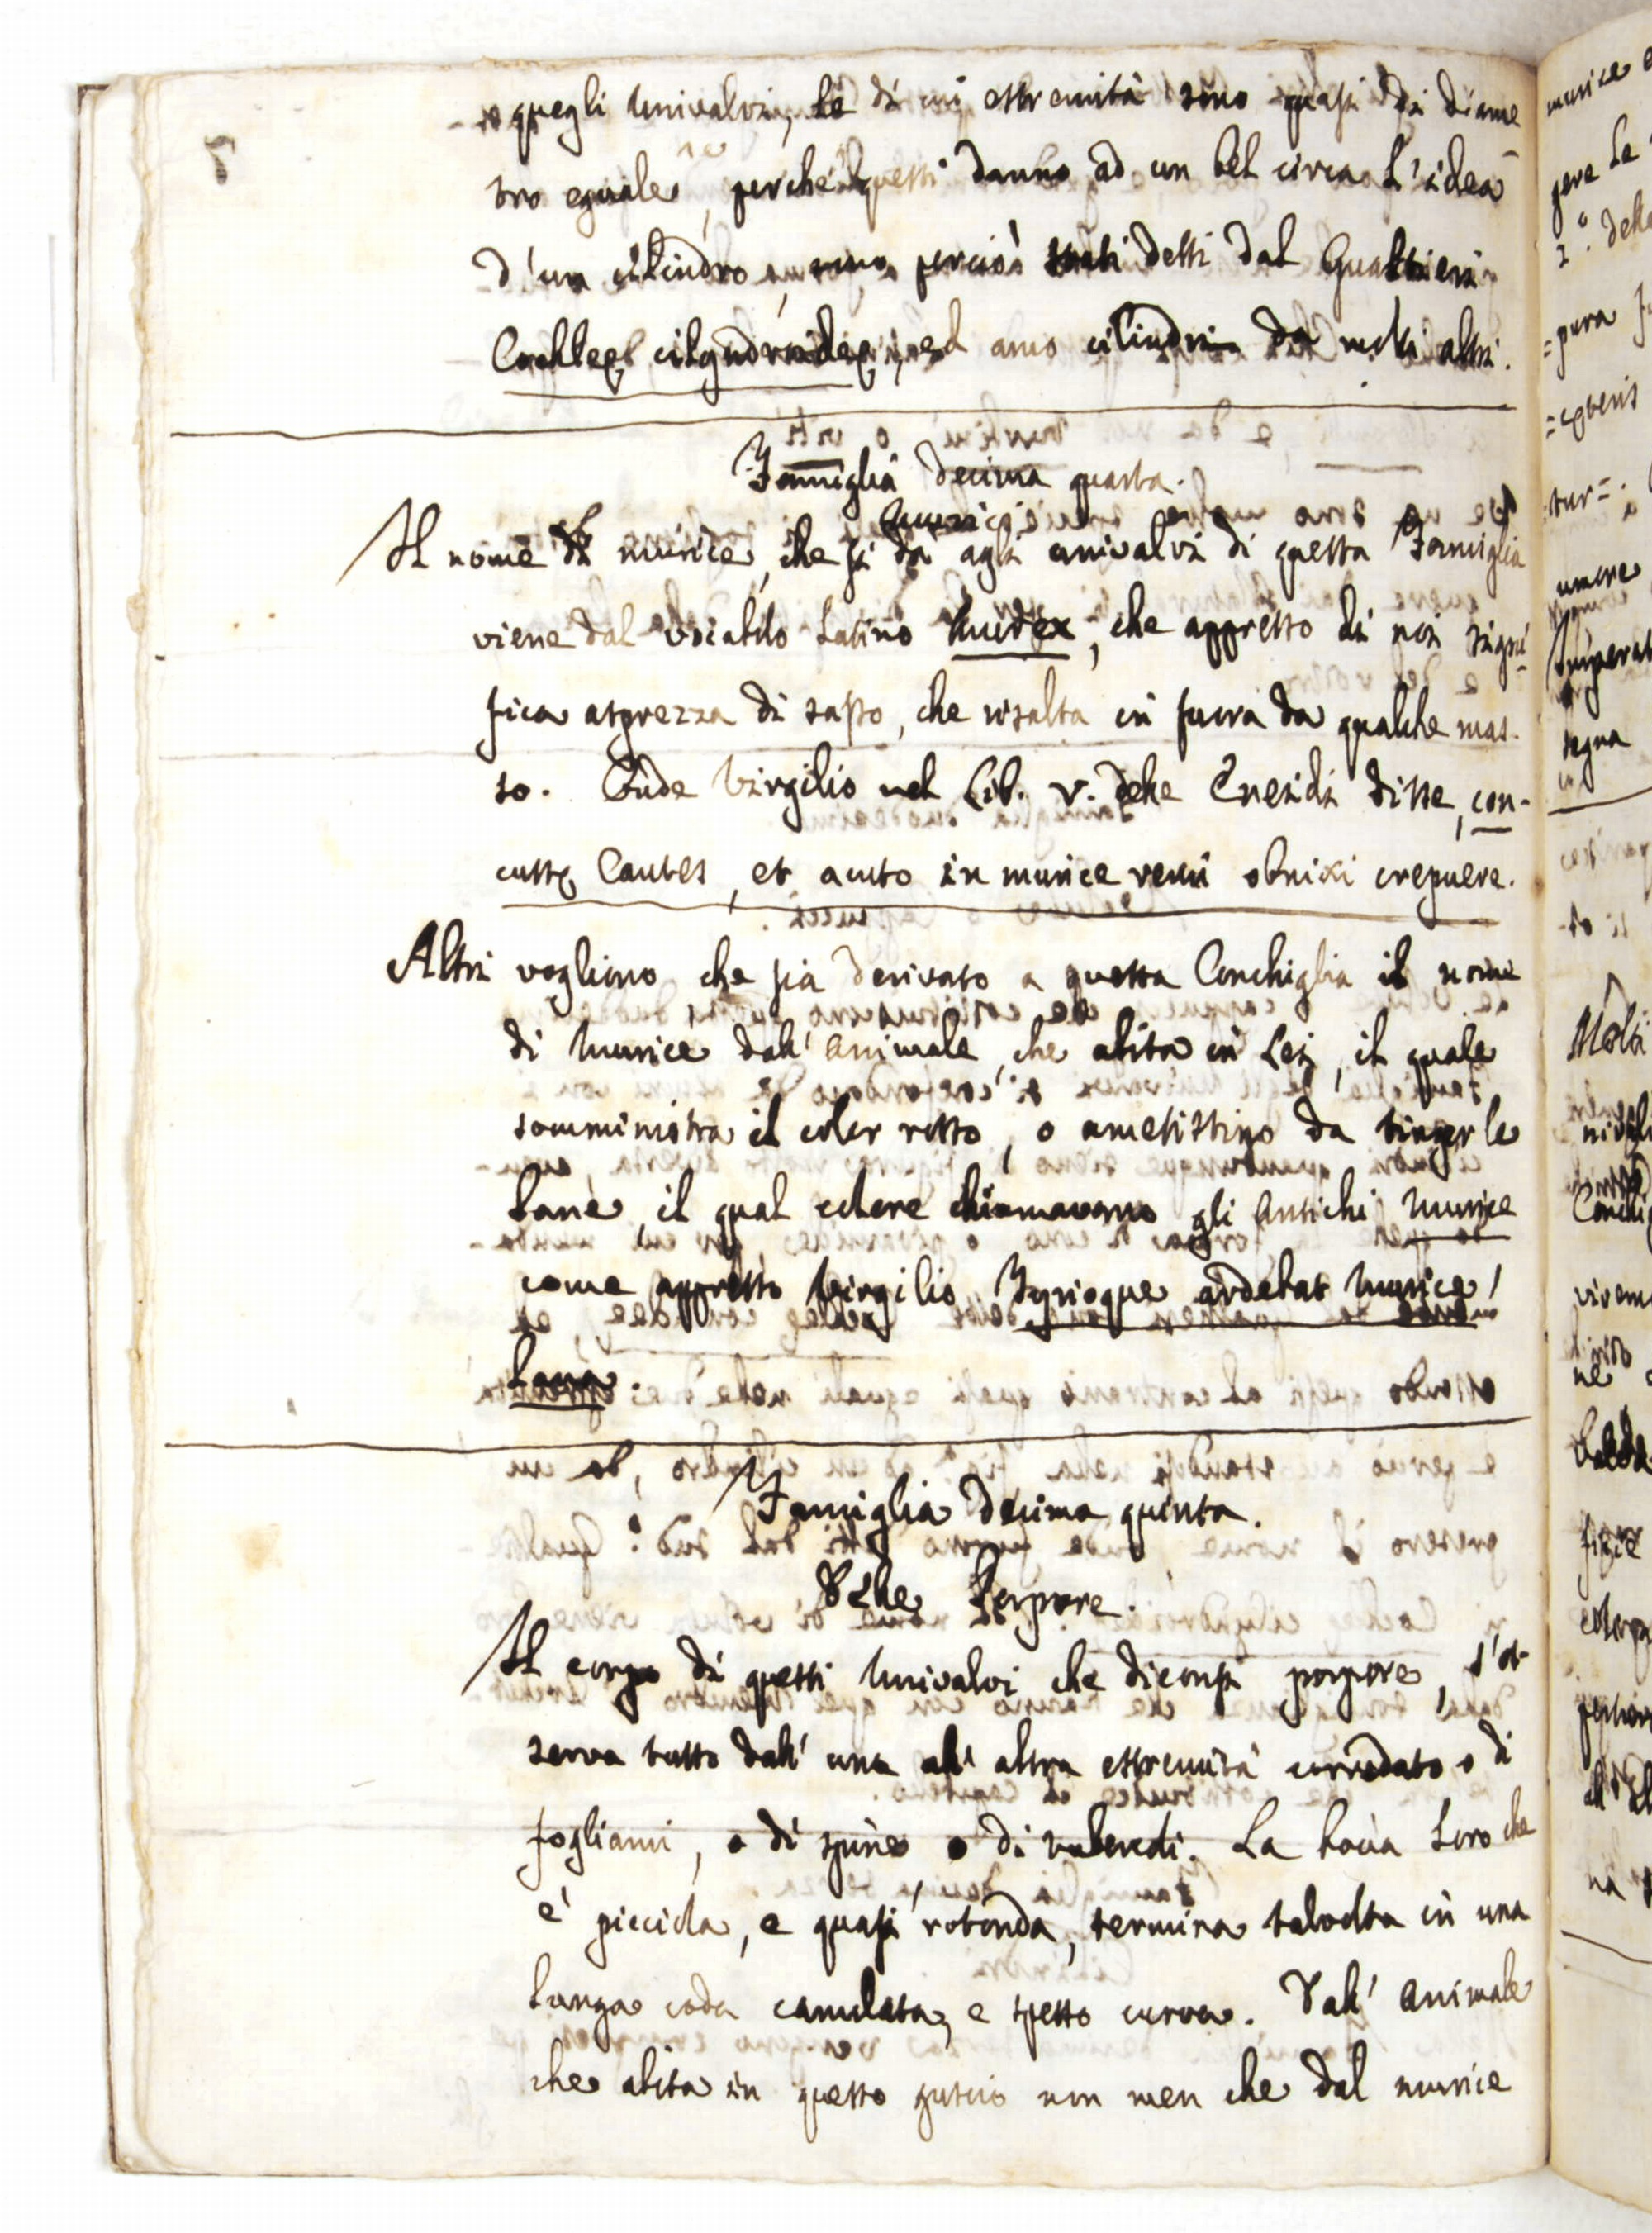 quegli Univalvi, le di cui estremità sono quasi di diame
tro eguale, perche questi danno ad un bel circa l'idea
d'un cilindro, sono perciò stati detti dal Gualtieri
Cochleę cilyndroideę, ed anco cilindri da molti altri.
Famiglia decima quarta.
Murici
Il nome di murice, che si da agli univalvi di questa Famiglia
viene dal vocabolo Latino Murex, che appresso di noi signi
fica asprezza di sasso, che risalta in fuora da qualche mas-
so. Onde Virgilio nel Lib. V. delle Eneidi disse, con-
cussę Cautes, et acuto in murice remi obnixi crepuere.
Altri vogliono che sia derivato a questa Conchiglia il nome
di Murice dall' animale, che abita in Lei, il quale
somministra il color rosso, o ametistino da tinger le
Lane, il qual colore chiamavano gli Antichi Murice
come appresso Virgilio Tyrioque ardebat Murice
Lana.
Famiglia decima quinta.
Delle Porpore.
Il corpo di questi Univalvi che diconsi porpore, s'os-
serva tutto dall' una all' altra estremità corredato o di
fogliami, o di spine o di tubercoli. La bocca Loro che
e' piccola, e quasi rotonda, termina talvolta in una
Lunga coda canulata, e spesso curva. Dall' Animale
che abita in questo guscio non men che dal murice